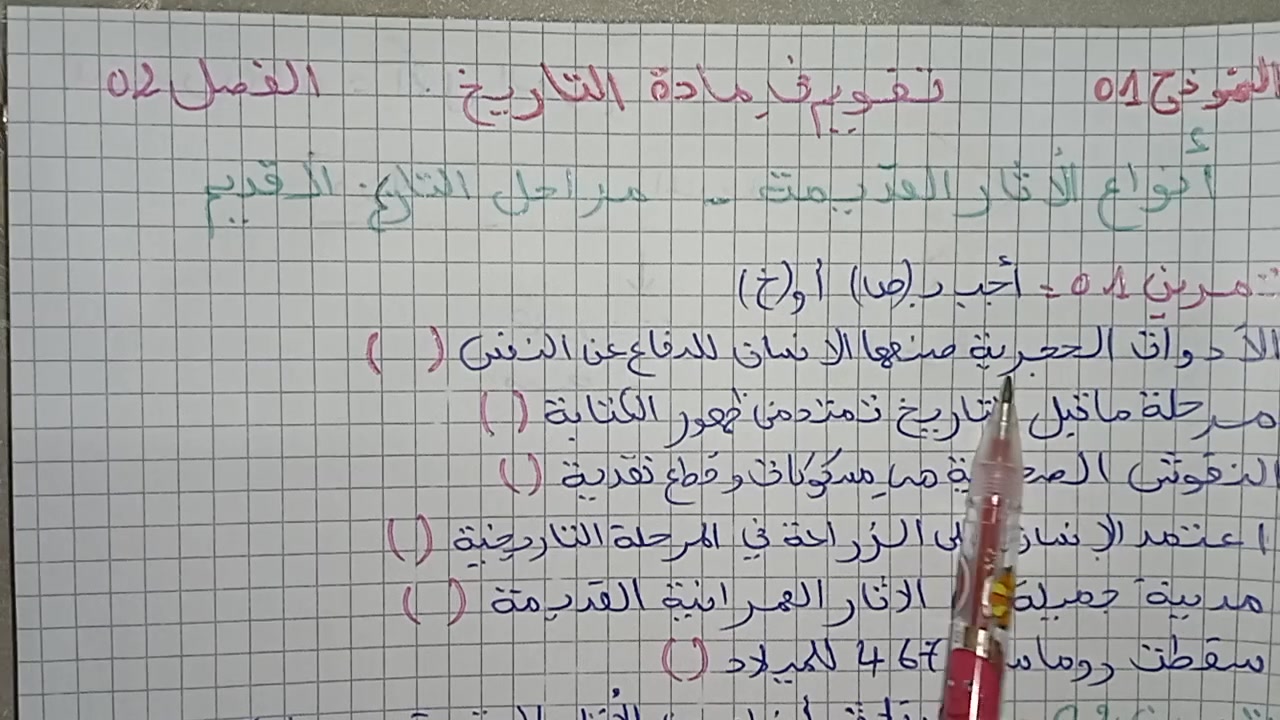 النموذج 01 تقويم في مادة التاريخ الفصل 02
أنواع الأثار القديمة - مراحل التاريخ القديم
تمرين 01 = أجب بـ (ص) أو (خ)
الأدوات الحجرية صنعها الانسان للدفاع عن النفس ( )
مرحلة ماقبل التاريخ تمتد من ظهور الكتابة ( )
النقوش هي مسكوكات وقطع نقدية ( )
اعتمد الإنسان على الزراعة في المرحلة التاريخية ( )
مدينة جميلة الاثار العمرانية القديمة ( )
سقطت روما 467 للميلاد ( )